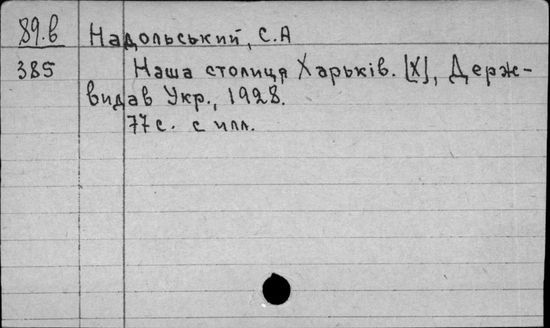 89.в Надольський, С.А
385 Наша столиця Харьків. [Х], Держ-
видав Укр., 1928.
77 с. с илл.